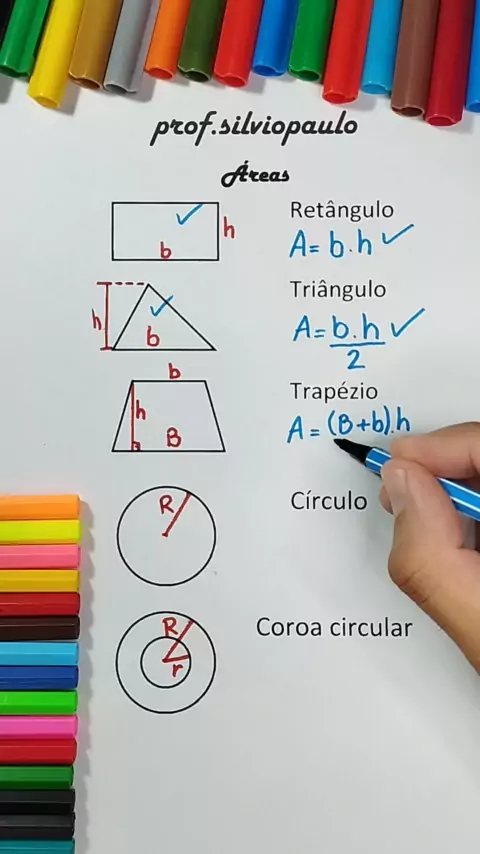 prof.silviopaulo
Áreas
Retângulo
h
b
A = b.h
Triângulo
h
b
A = b.h
2
Trapézio
b
h
B
A = (B+b).h
R
Círculo
R
r
Coroa circular